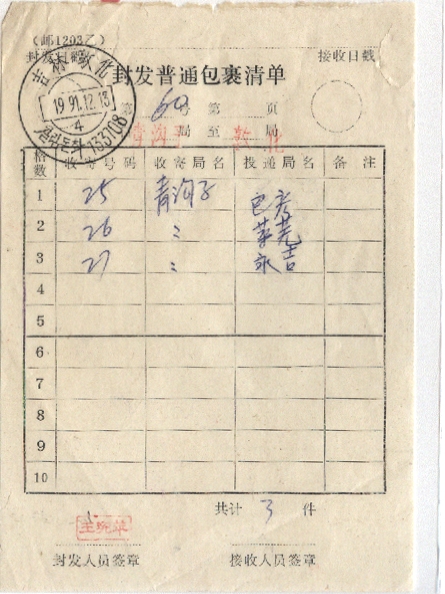 (邮1203乙)
封发日戳 接收日戳
吉林 敦化
1991.12.13
4
길림돈화 133108
封发普通包裹清单
第 60 号 第 页
青沟子 局 至 敦化 局
格数 收寄号码 收寄局名 投递局名 备注
1 25 青沟子
2 26 〃 莱芜
3 27 〃 永吉
4
5
6
7
8
9
10
共计 3 件
封发人员签章 接收人员签章